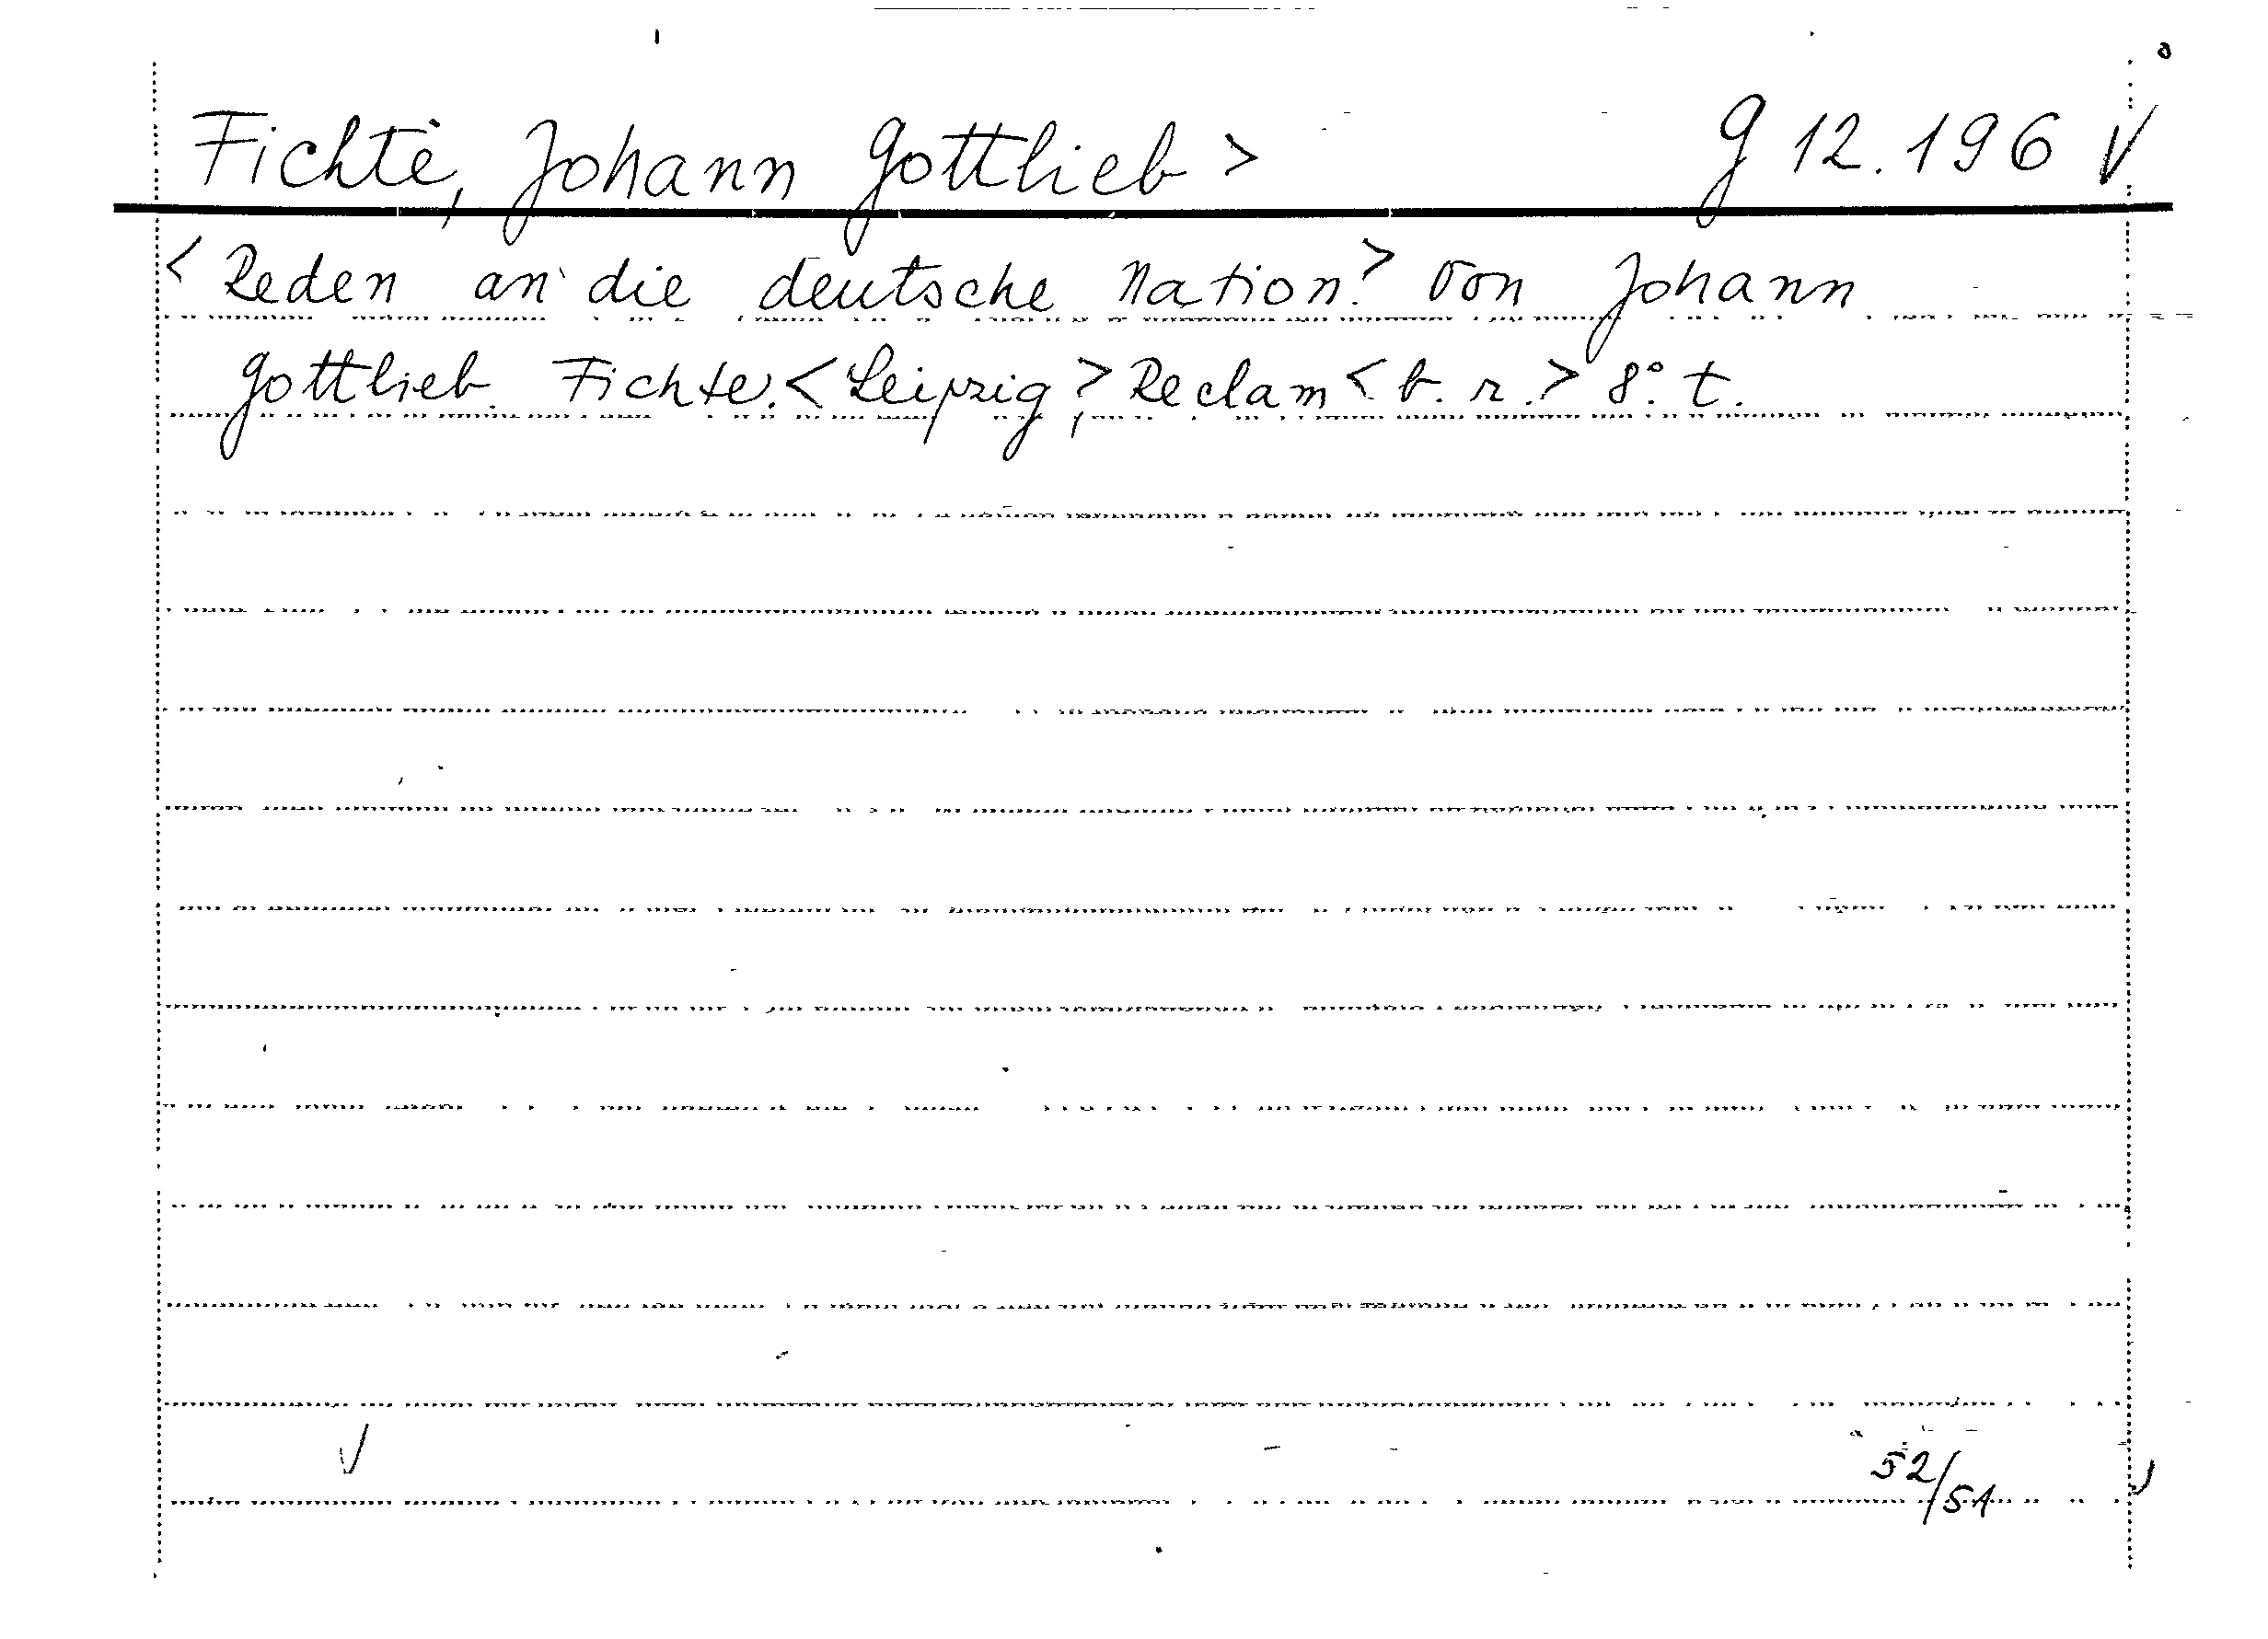 Fichte, Johann Gottlieb >
G 12.196 √
< Reden an die deutsche Nation.> von Johann
Gottlieb Fichte. < Leipzig >, Reclam < b. r. > 8° t.
√
52/51